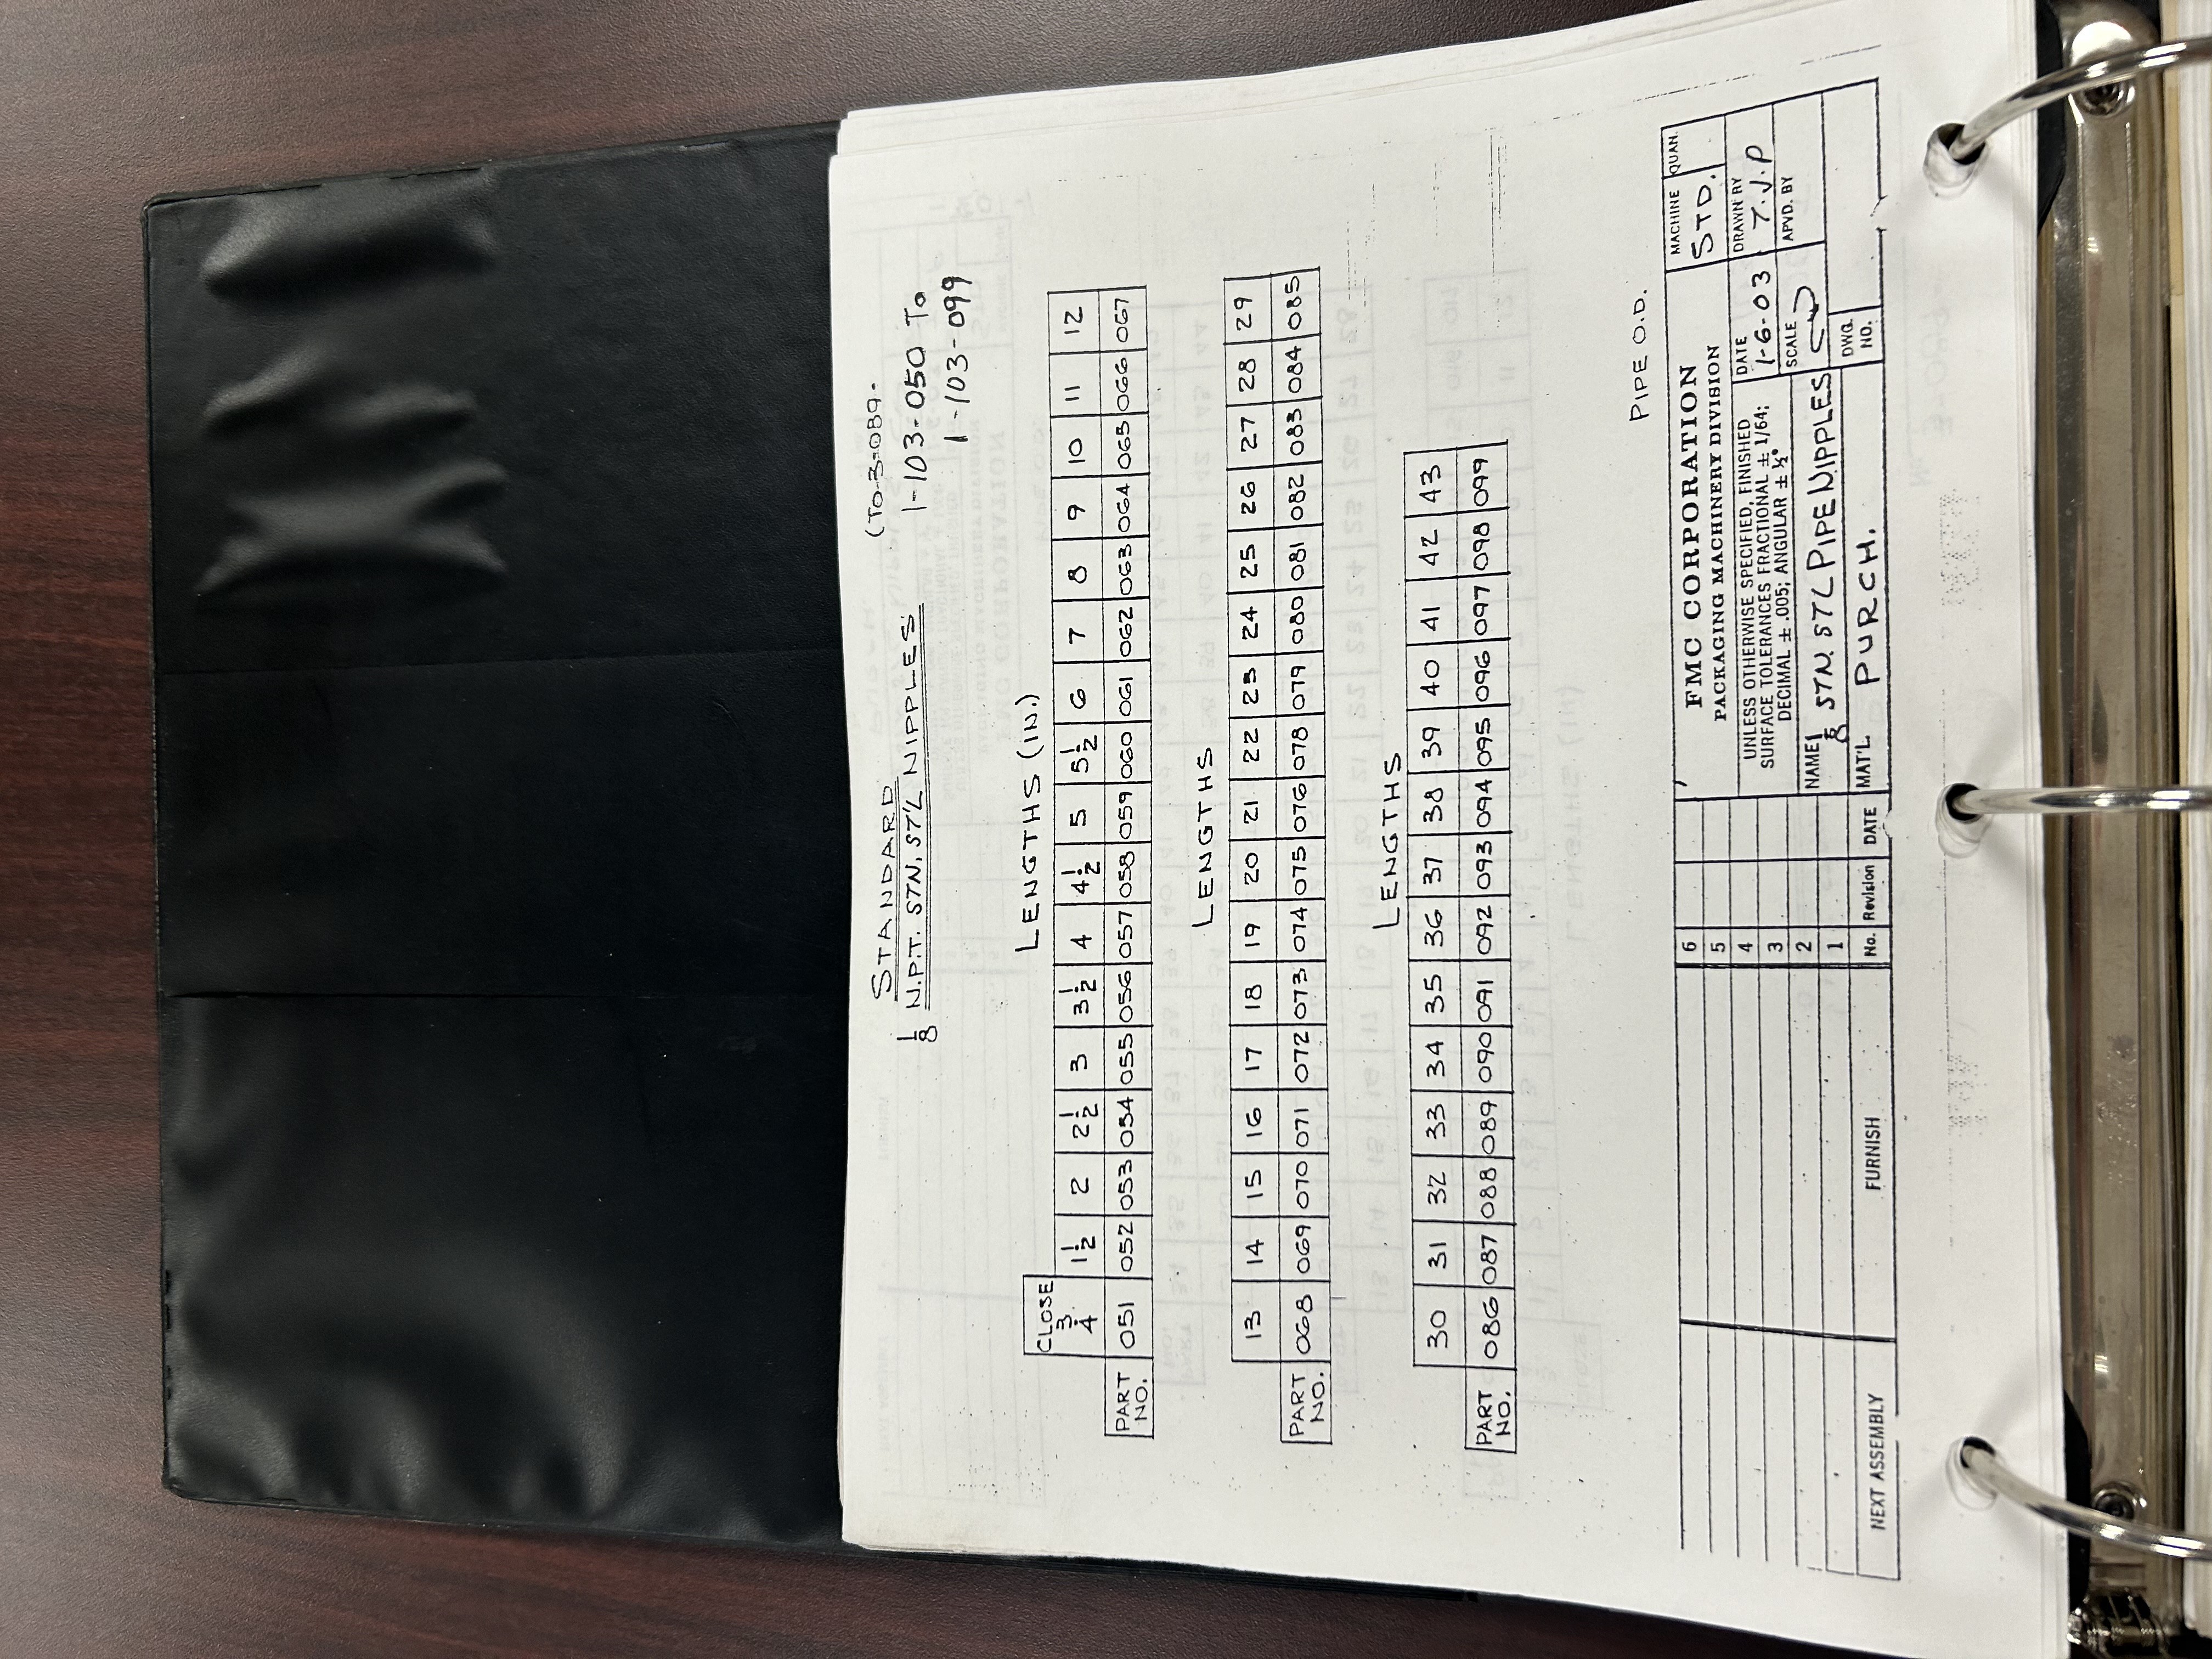 STANDARD
1/8 N.P.T. STN. ST'L NIPPLES
(TO-3-089-
1-103-050 TO
1-103-099
LENGTHS (IN.)
CLOSE 3/4 1 1/2 2 2 1/2 3 3 1/2 4 4 1/2 5 5 1/2 6 7 8 9 10 11 12
PART NO. 051 052 053 054 055 056 057 058 059 060 061 062 063 064 065 066 067
LENGTHS
13 14 15 16 17 18 19 20 21 22 23 24 25 26 27 28 29
PART NO. 068 069 070 071 072 073 074 075 076 078 079 080 081 082 083 084 085
LENGTHS
30 31 32 33 34 35 36 37 38 39 40 41 42 43
PART NO. 086 087 088 089 090 091 092 093 094 095 096 097 098 099
PIPE O.D.
6
5
4
3
2
1
NEXT ASSEMBLY FURNISH No. Revision DATE
FMC CORPORATION
PACKAGING MACHINERY DIVISION
MACHINE STD.
QUAN.
UNLESS OTHERWISE SPECIFIED, FINISHED
SURFACE TOLERANCES FRACTIONAL ± 1/64;
DECIMAL ± .005; ANGULAR ± ½°
DATE 1-6-03
DRAWN BY T.J.P
SCALE
APVD. BY
NAME 1/8 STN. STL PIPE NIPPLES
MAT'L. PURCH.
DWG. NO.